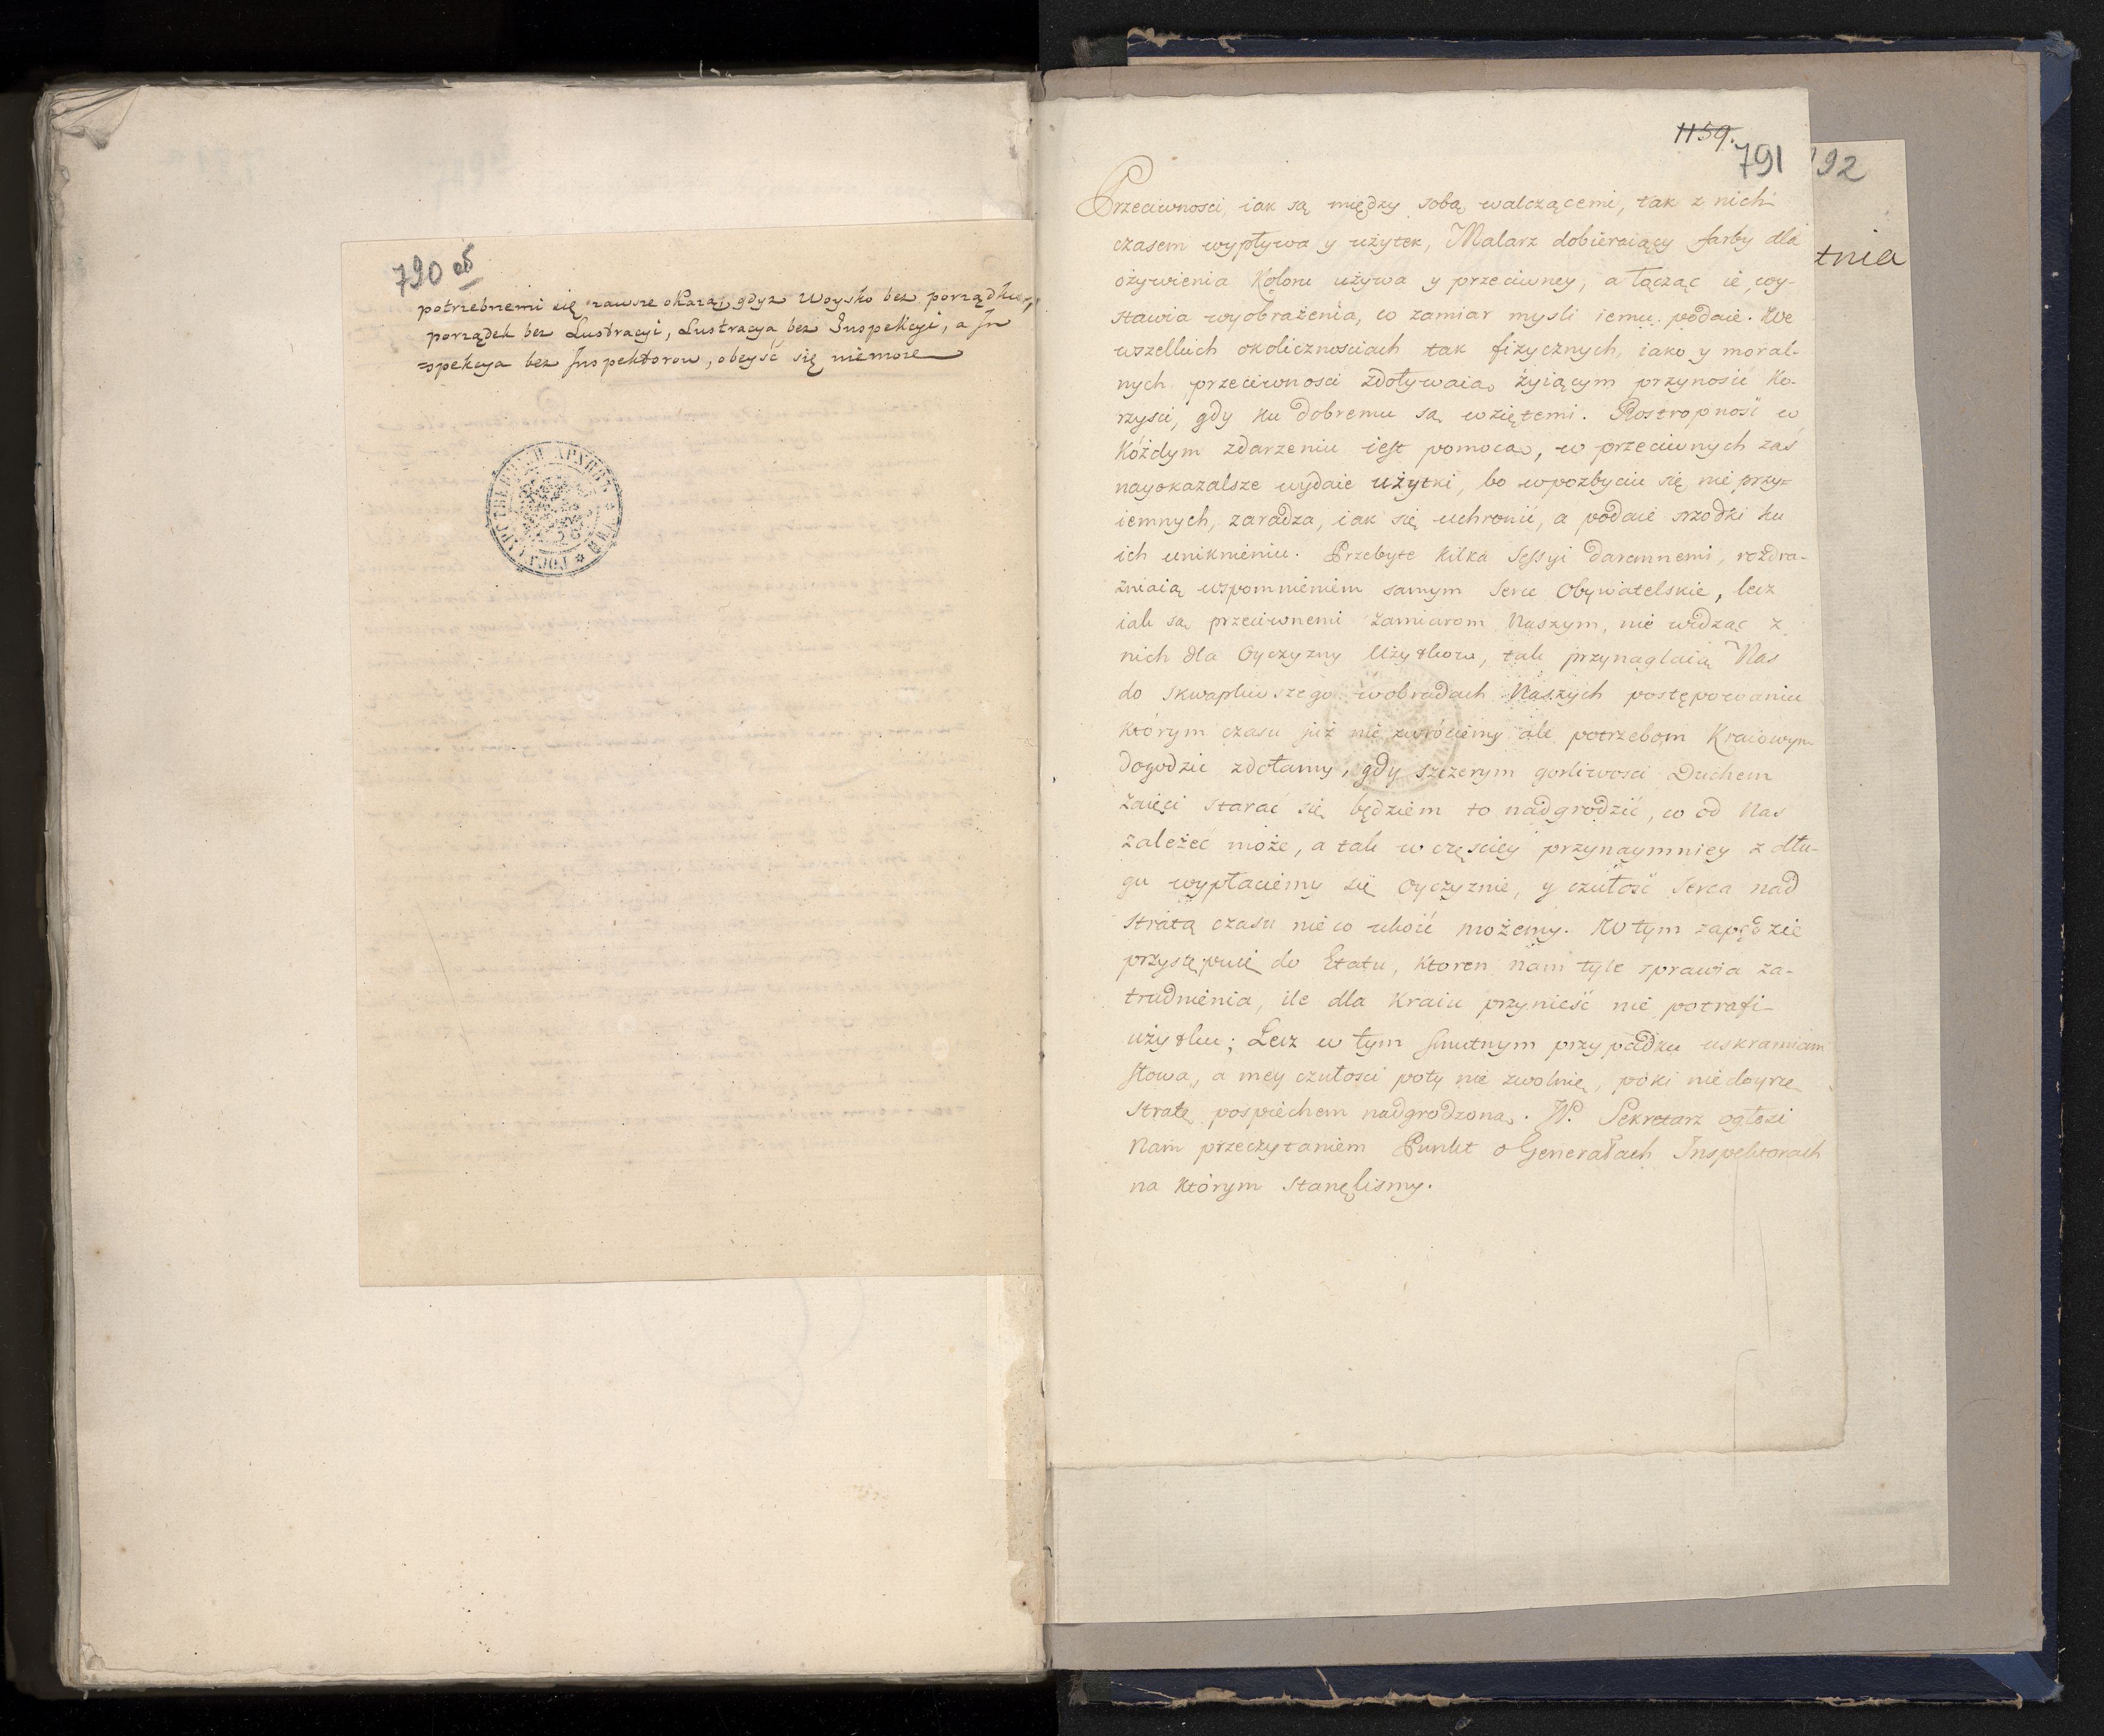 790 об
potrzebnemi się zawsze okażą, gdyz Woysko bez porządku,
porządek bez Lustracyi, Lustracya bez Inspekcyi, a In
=spekcya bez Inspektorow, obeyść się niemoże
1159.
791
192
tnia
Przeciwnosci, iak są między sobą walczącemi, tak z nich
czasem wypływa y użytek, Malarz dobieraiący farby dla
ożywienia Koloru używa y przeciwney, a łącząc ie, wy-
stawia wyobrażenia, co zamiar mysli iemu podaie. We
wszelkich okolicznosciach tak fizycznych, iako y moral-
nych przeciwnosci zdoływaią żyiącym przynosić Ko-
rzysci, gdy ku dobremu są wziętemi. Rostropność w
Kóżdym zdarzeniu iest pomocą, w przeciwnych zaś
nayokazalsze wydaie użytki, bo w pozbyciu się nie przy=
iemnych, zaradza, iak się uchronić, a podaie srzodki ku
ich uniknieniu. Przebyte kilka Sessyi daremnemi, rozdra-
żniaią wspomnieniem samym Serce Obywatelskie, lecz
iak są przeciwnemi zamiarom Naszym, nie widząc z
nich dla Oyczyzny Użytkow, tak przynaglaią Nas
do skwapliwszego w obradach Naszych postępowaniu
którym czasu już nie zwróciemy ale potrzebom Kraiowym
dogodzic zdołamy, gdy szczerym gorliwosci Duchem
zaięci starać się będziem to nadgrodzić, co od Nas
zależeć może, a tak w częsciey przynaymniey z dłu-
gu wypłaciemy się Oyczyznie, y czułość Serca nad
stratą czasu nieco ukoić możemy. W tym zapędzie
przystępuię do Etatu, ktoren nam tyle sprawia za-
trudnienia, ile dla Kraiu przynieść nie potrafi
użytku; Lecz w tym smutnym przypadku uskramiam
słowa, a mey czułosci poty nie zwolnię, póki niedoyrzę
stratę pospiechem nadgrodzoną. W. Sekretarz ogłosi
Nam przeczytaniem Punkt o Generałach Inspektorach
na którym stanęlismy.